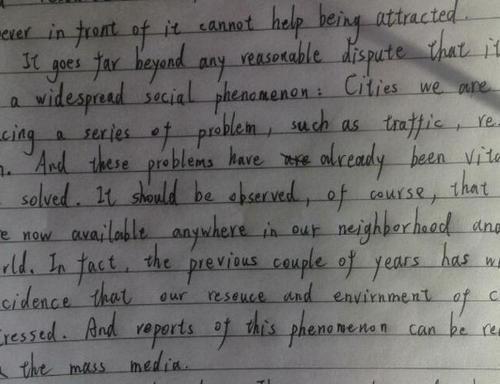 ever in front of it cannot help being attracted.
It goes far beyond any reasonable dispute that it
a widespread social phenomenon: Cities we are
cing a series of problem, such as traffic, re
n. And these problems have are already been vita
solved. It should be observed, of course, that
e now available anywhere in our neighborhood and
rld. In fact, the previous couple of years has w
cidence that our reseuce and envirnment of c
ressed. And reports of this phenomenon can be re
the mass media.